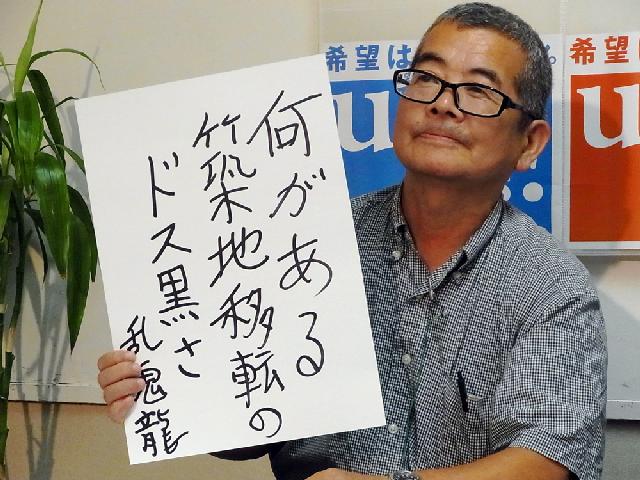 何がある
築地移転の
ドス黒さ
乱鬼龍
希望は
。
希望は
u
u